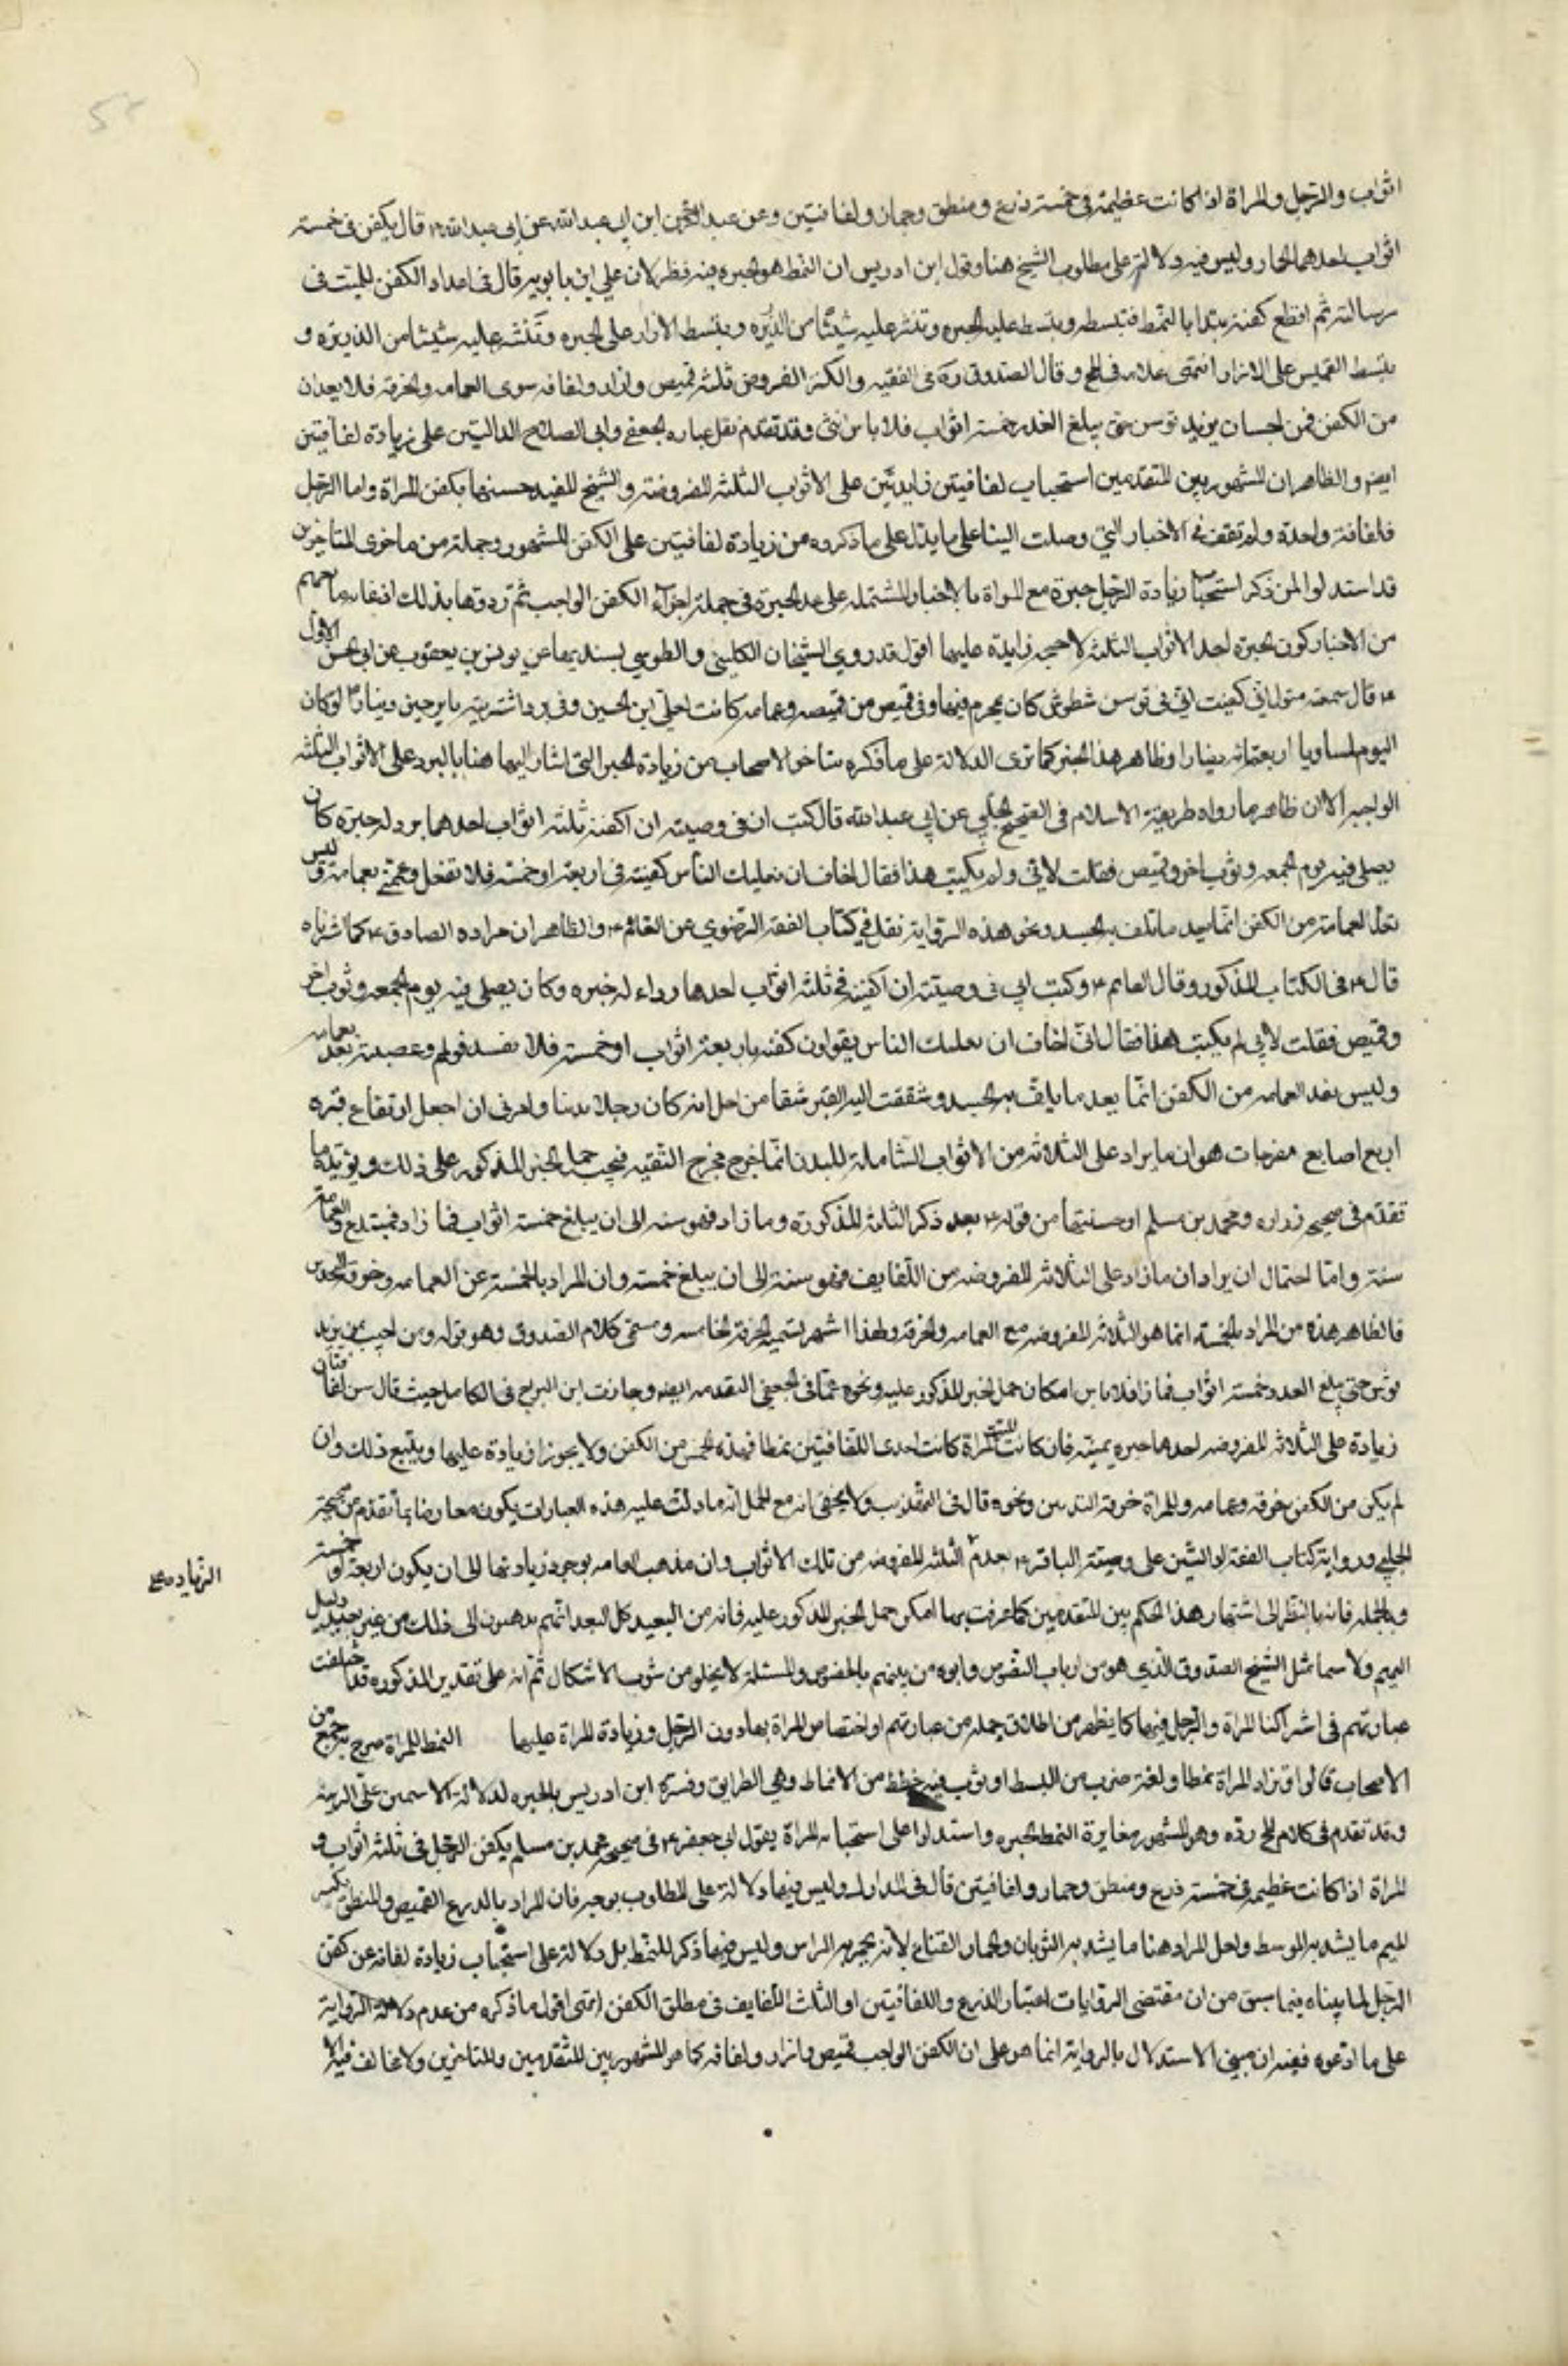 اثواب والرجل والمراة اذا كانت عظيمة في خمسة درع ومنطق وخمار ولفافتين وعن عبد الرحمن ابن ابي عبد الله عن ابي عبد الله ع قال يكفن في خمسة
اثواب احدها الخمار وليس فيه دلالة على مطلوب الشيخ هنا وقول ابن ادريس ان النمط هو الحبره فيه نظر لان علي ابن بابويه قال في اعداد الكفن للميت في
رسالته ثم اقطع كفنه يبتدا بالنمط فتبسطه ويبسط عليه الحبره وتنثر عليه شيئا من الذريره ويبسط الازار على الحبره وتنثر عليه شيئا من الذريره و
يبسط القميص على الازار انتهى كلامه في المخ وقال الصدوق ره في الفقيه والكفن المفروض ثلثه قميص وازار ولفافه سوى العمامه والخرقه فلا يعدان
من الكفن فمن احب ان يزيد حتى يبلغ العدد خمسة اثواب فلا باس انتهى وقد تقدم نقل عباره الجعفي وابي الصلاح الدالتين على زيادة لفافتين
ايضا والظاهر ان المشهور بين المتقدمين استحباب لفافتين زايدتين على الاثواب الثلثه المفروضه والشيخ المفيد بكفن المراة واما الرجل
فلفافة واحدة ولم تقف في الاخبار التي وصلت الينا على ما يدل على ما ذكروه من زيادة لفافتين على الكفن المشهور وجملة من متاخري المتاخرين
قد استدلوا لمن ذكر استحباب زيادة الرجل حبرة مع المراة بالاخبار المشتمله على عد الحبرة في جملة اجزاء الكفن الواجب ثم ردوها بذلك
من الاخبار كون الحبرة احد الاثواب الثلثه لا زايدة عليها اقول قد روي الشيخان الكليني والطوسي بسنديهما عن يونس بن يعقوب عن ابي الحسن الاول
ع قال سمعته يقول اني كفنت ابي في ثوبين شطويين كان يحرم فيهما وفي قميص من قمصه وعمامه كانت لعلي ابن الحسين وفي برد اشتريته باربعين دينارا لو كان
اليوم لساوى اربعمائه دينارا وظاهر هذا الخبر كما ترى الدلالة على ما ذكره متاخروا الاصحاب من زيادة الحبرة التي اشار اليها هنا بالبرد على الاثواب الثلثه
الواجبه الا ان ظاهر ما رواه ثقة الاسلام في الصحيح الحلبي عن ابي عبد الله قال كتب ابي في وصيته ان اكفنه ثلثه اثواب احدها برد له حبرة كان
يصلي فيه يوم الجمعه وثوب اخر وقميص فقلت لابي ولم تكتب هذا فقال اخاف ان يغلبك الناس كفنه في اربعة او خمسة فلا تفعل وعممه بعمامة وليس
تعد العمامة من الكفن انما يعد ما تلف به الجسد ونحو هذه الرواية نقل في كتاب الفقه الرضوي عن العالم ع والظاهر ان مراده الصادق ع كما اشرناه
قال ع في الكتاب المذكور وقال العالم ع وكتب ابي في وصيته ان اكفنه في ثلثه اثواب احدها رداء له حبره وكان يصلي فيه يوم الجمعه وثوب اخر
وقميص فقلت لابي لم تكتب هذا فقال اني اخاف ان يغلبك الناس يقولون كفنه باربعة اثواب او خمسة فلا تقبل قولهم وعصبته بعد بعمامه
وليس تعد العمامه من الكفن انما يعد ما يلف به الجسد وشققت اليه القبر شقا من اجل انه كان رجلا بدنا وامرني ان اجعل ارتفاع قبره
اربع اصابع مفرجات هو ان ما يزاد على الثلاثه من الاثواب الشاملة للبدن انما خرج مخرج التقيه فيجب حمل الخبر المذكور على ذلك ويؤيده ما
تقدم في صحيح زراره ومحمد بن مسلم او حسنتهما من قوله ع بعد ذكر الثلثه المذكورة وما زاد فهو سنه الى ان يبلغ خمسة اثواب فما زاد فمبتدع والعمامة
سنة واما احتمال ان يراد ان ما زاد على الثلاثه المفروضه من اللفايف فهو سنة الى ان يبلغ خمسه وان المراد بالخمسة عن العمامه وخرقة
فالظاهر هذه من المراد بالخمسة انما هو الثلاثه المفروضه مع العمامه والخرقه ولهذا اشتهر تسميه الخرقه الخامسه كلام الصدوق وهو قوله ومن احب ان يزيد
حتى يبلغ العدد خمسة اثواب فما زاد فلا باس امكان حمل الخبر المذكور عليه ونحوه الجعفي المتقدمه ايضا وعبارة ابن البراج في الكامل حيث قال يسن لفافتان
زيادة على الثلاثه المفروضه احدها حبره يمنيه فان كانت الميت امراة كانت احدى اللفافتين نمطا فهذه الخمس من الكفن ولا يجوز الزيادة عليها ويتبع ذلك وان
لم يكن من الكفن خرقه وعمامه وللمراة خرقة الثديين ونحوه قال في المهذب ولا يخفى انه مع الحمل انه ما دلت عليه هذه العبارات يكون معارضا بما تقدم من صحيحة
الحلبي ورواية كتاب الفقه لدالتين على وصيته الباقر ع بعدم الثلثه المفروضه من تلك الاثواب وان مذهب العامه بوجود زيادتها الى ان يكون اربعة او خمسة
وبالجمله فانه بالنظر الى اشتهار هذا الحكم بين المتقدمين كما عرفت ربما امكن حمل الخبر المذكور عليه فانه من البعيد كل البعد انهم يذهبون الى ذلك من غير دليل
اليهم ولا سيما مثل الشيخ الصدوق الذي هو من ارباب النصوص وابوه من بينهم بالخصوص والمسئلة لا تخلو من شوب الاشكال ثم انه على تقدير المذكوره قد اختلفت
عبارتهم في اشتراكنا المراة والرجل فيهما كما يظهر من اطلاق جمله من عباراتهم او اختصاص المراة بها دون الرجل وزيادة المراة عليها النمط للمراة صرح به جمع من
الاصحاب قالوا وتزاد المراة نمطا ولغة ضرب من البسط او ثوب فيه خطط من الانماط وهي الطرايق وفسره ابن ادريس بالحبره لدلالة الاسمين على الزينه
وقد تقدم في كلام المخ رده وهو المشهور مغايرة النمط الحبره واستدلوا على استحبابه للمراة بقول ابي جعفر ع في صحيح محمد بن مسلم يكفن الرجل في ثلثه اثواب و
المراة اذا كانت عظيمه في خمسة درع ومنطق وخمار ولفافتين قال في المدارك وليس فيها دلالة على المطلوب بوجه فان المراد بالدرع القميص والمنطق بكسر
الميم ما يشد به الوسط ولعل المراد هنا ما يشد به الثديان والخمار القناع لانه يخمر به الراس وليس فيها ذكر للنمط بل دلالة على استحباب زيادة لفافه عن كفن
الرجل لما بيناه فيما سبق من ان مقتضى الروايات اعتبار الدرع واللفافتين او الثلث اللفايف في مطلق الكفن انتهى اقول ما ذكره من عدم دلالة الرواية
على ما ادعوه ففيه ان مبنى الاستدلال بالرواية انما هو على ان الكفن الواجب قميص وازار ولفافه كما هو المشهور بين المتقدمين والمتاخرين ولا مخالف فيه الا
الزياده على